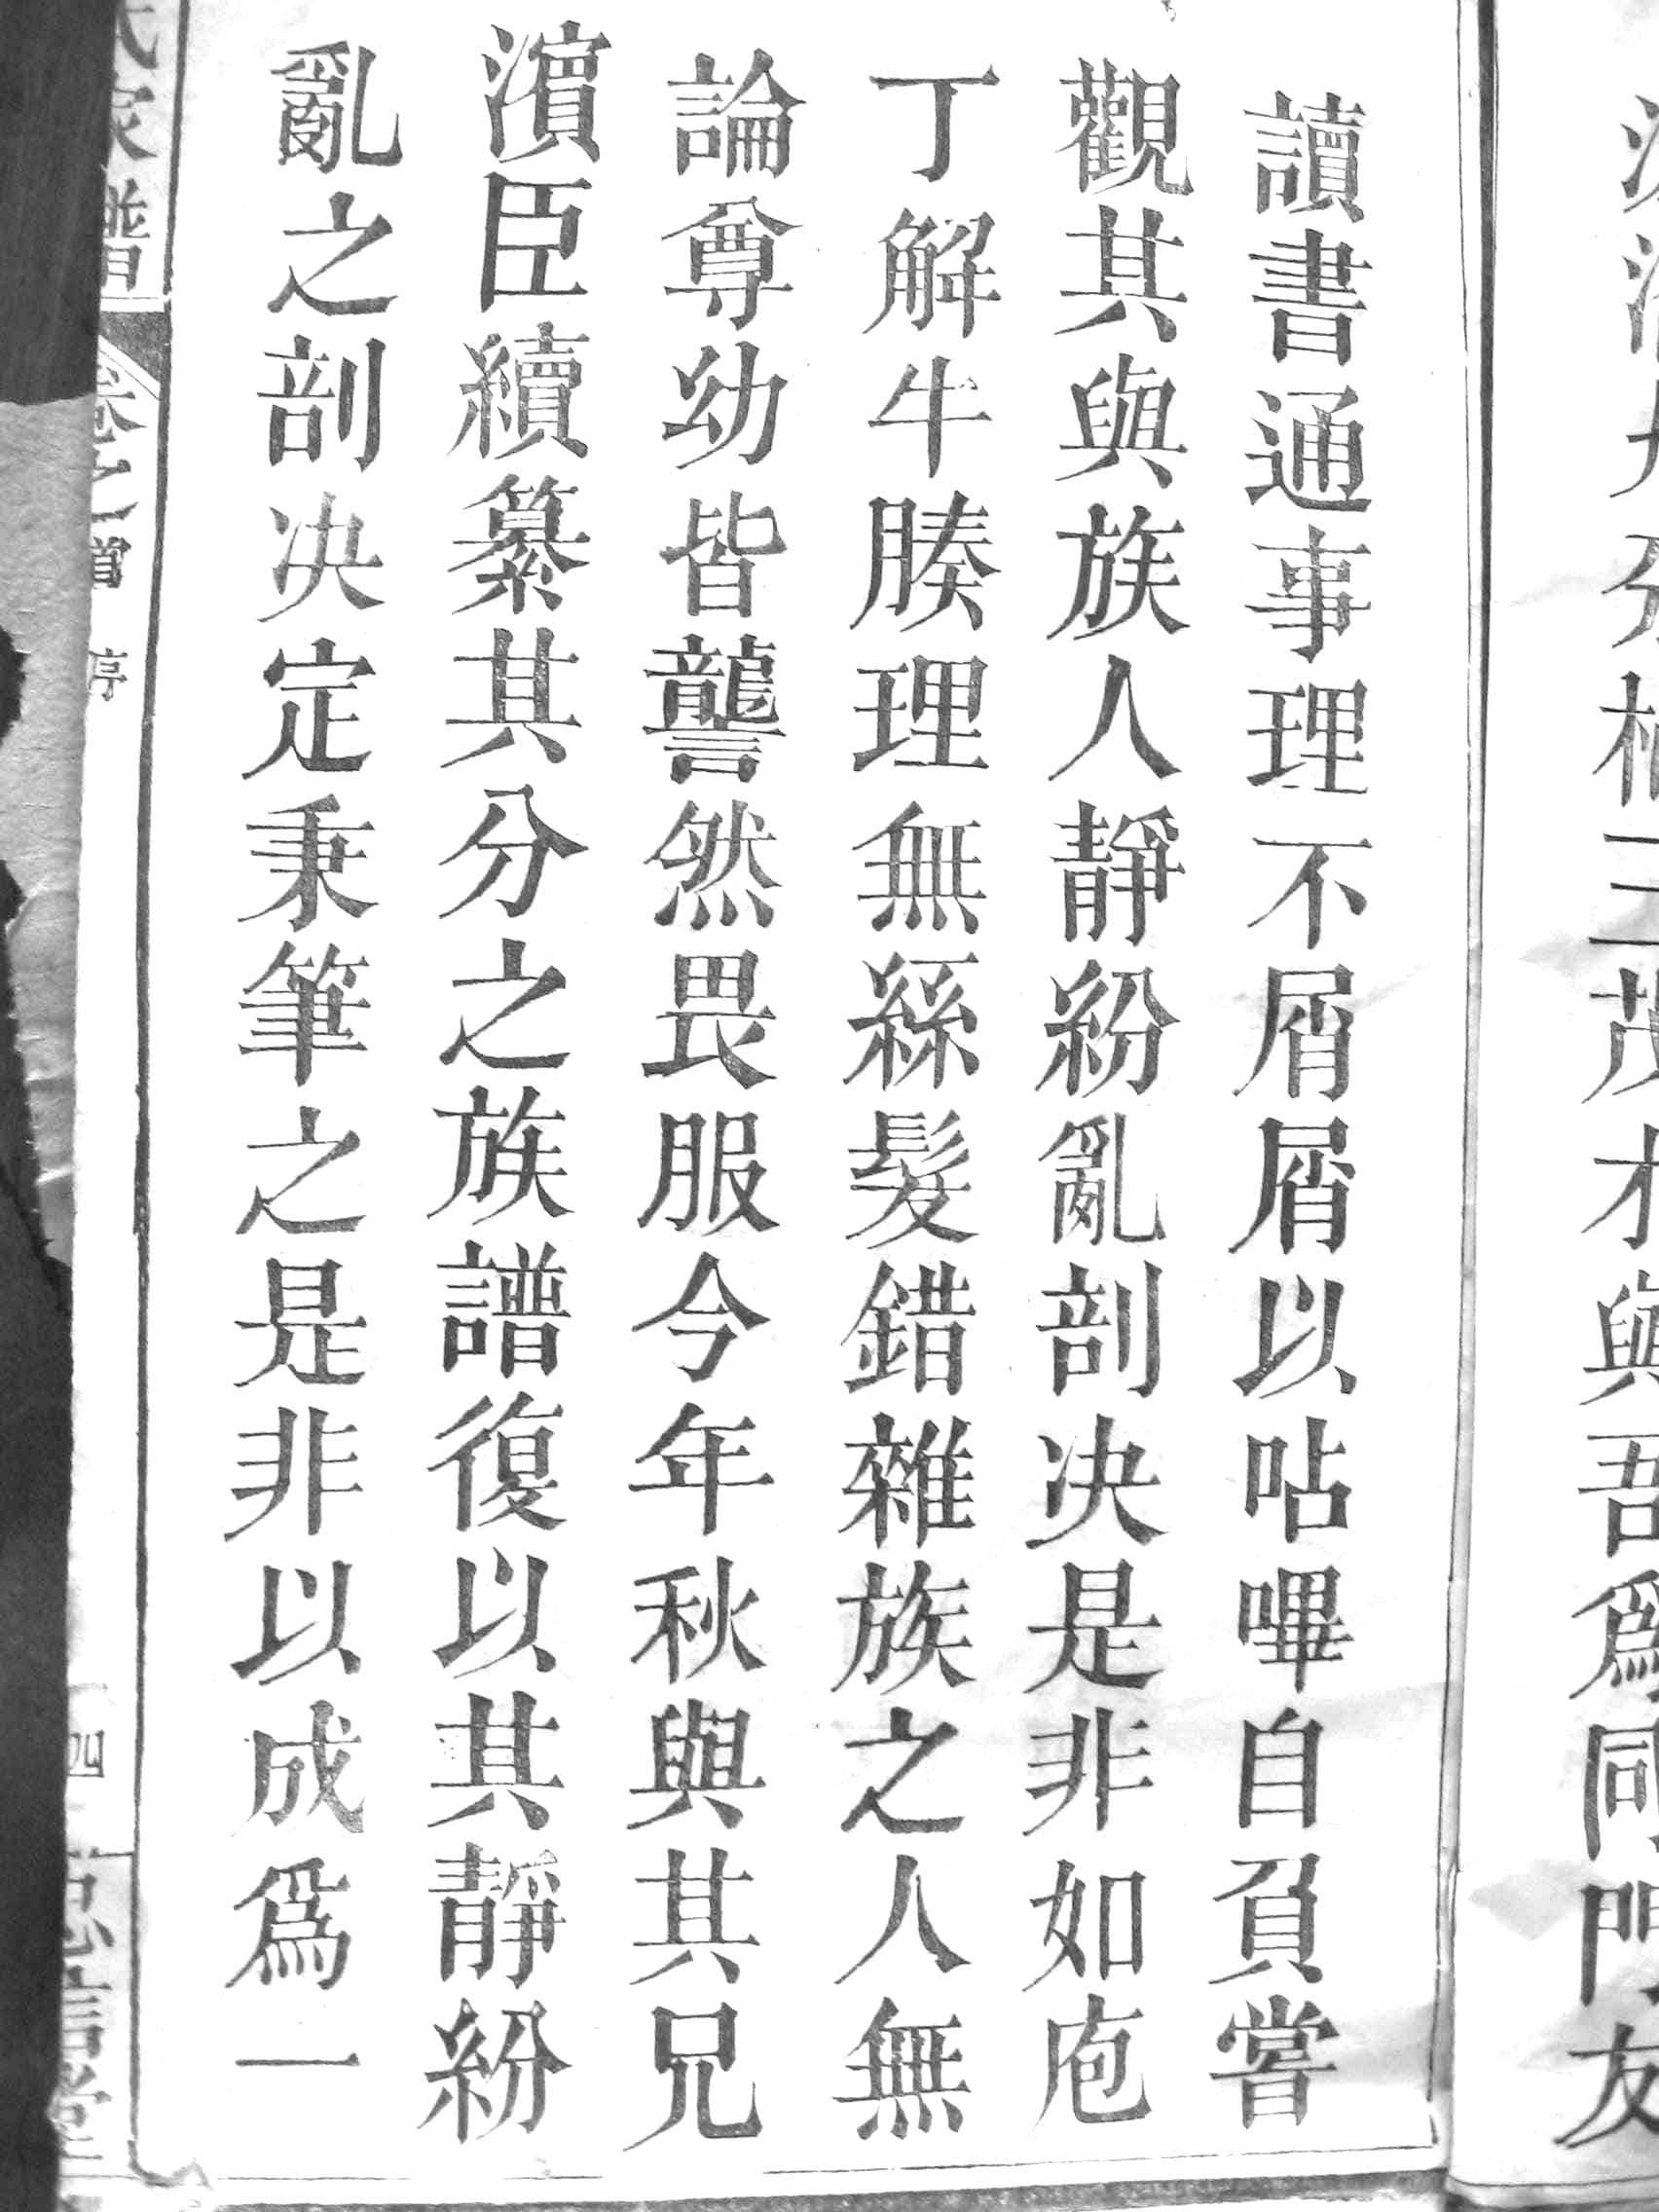 與吾爲同門友
讀書通事理不屑屑以呫嗶自負嘗
觀其與族人靜紛亂剖决是非如庖
丁解牛腠理無絲髮錯雜族之人無
論尊幼皆讋然畏服今年秋與其兄
濱臣續纂其分之族譜復以其靜紛
亂之剖决定秉筆之是非以成爲一
氏家譜
卷之首
序
四
忠信堂